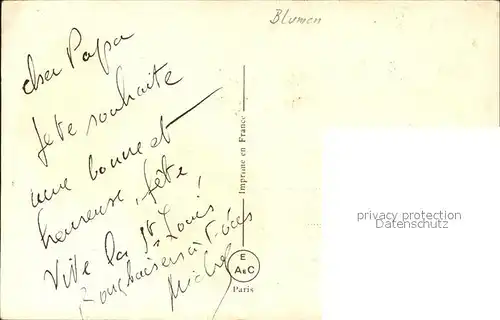 Blumen
cher Papa
je te souhaite
une bonne et
heureuse fête
Vive la St Louis !
Bons baisers à tous
Michel
Imprimé en France
E
A & C
Paris
privacy protection
Datenschutz